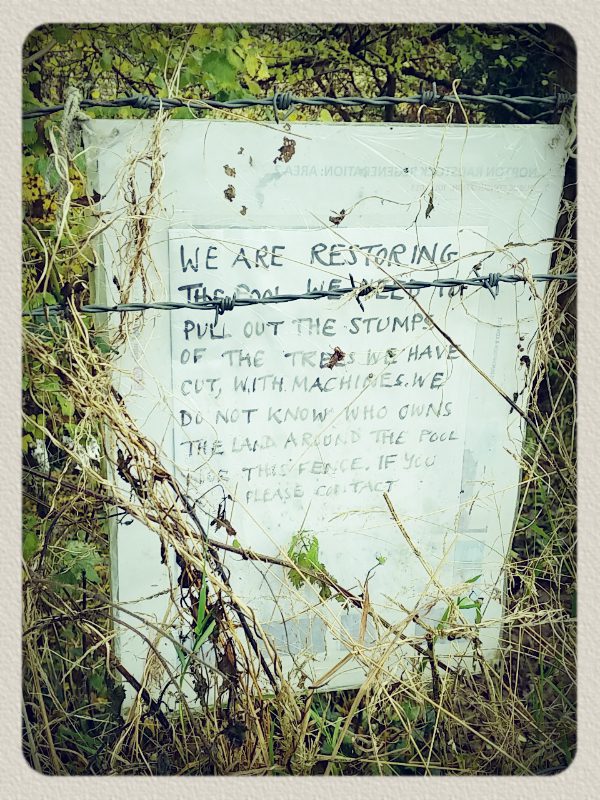 NORTON RADSTOCK REGENERATION: AREA
WE ARE RESTORING
THE POOL WE NEED TO
PULL OUT THE STUMPS
OF THE TREES WE HAVE
CUT, WITH MACHINES. WE
DO NOT KNOW WHO OWNS
THE LAND AROUND THE POOL
THIS FENCE. IF YOU
PLEASE CONTACT